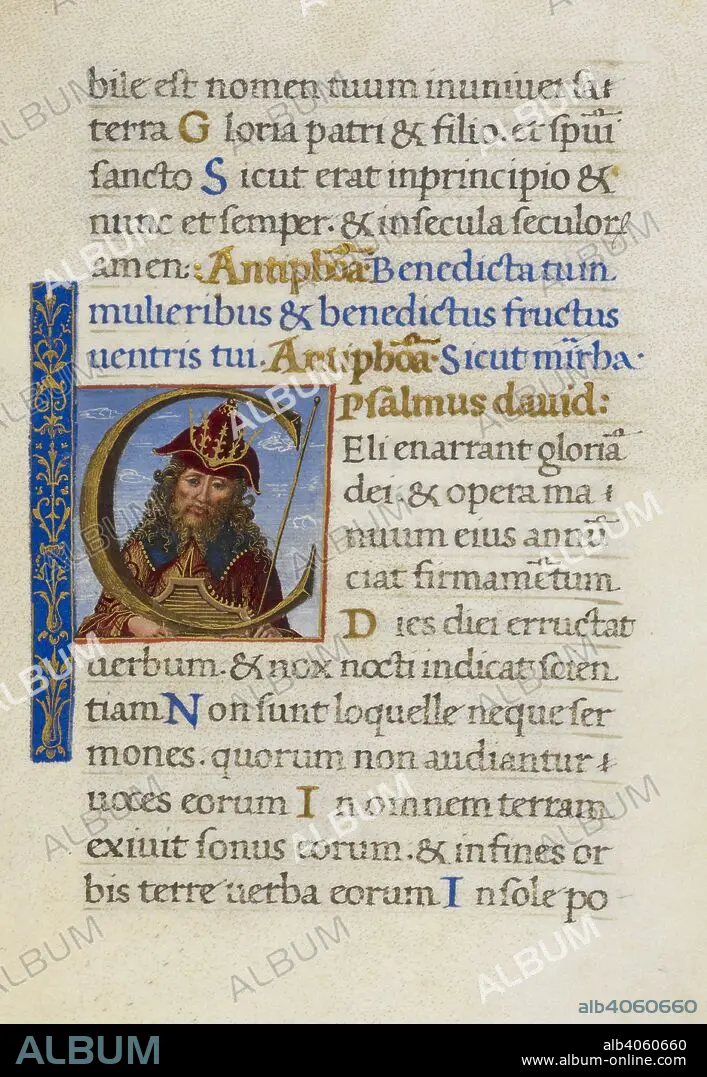 bile est nomen tuum in uniuersa
terra Gloria patri & filio. et spũi
sancto Sicut erat inprincipio &
nunc et semper. & insecula seculoꝝ
amen: Antiphõa Benedicta tu in
mulieribus & benedictus fructus
uentris tui. Antiphõa Sicut mirrha.
Psalmus dauid:
CEli enarrant gloriã
dei. & opera ma
nuum eius annũ
ciat firmamẽtum
Dies diei erructat
uerbum. & nox nocti indicat scien
tiam Non sunt loquelle neque ser
mones. quorum non audiantur
uoces eorum In omnem terram
exiuit sonus eorum. & infines or
bis terre uerba eorum In sole po
alb4060660
ALBUM
alb4060660
www.album-online.com